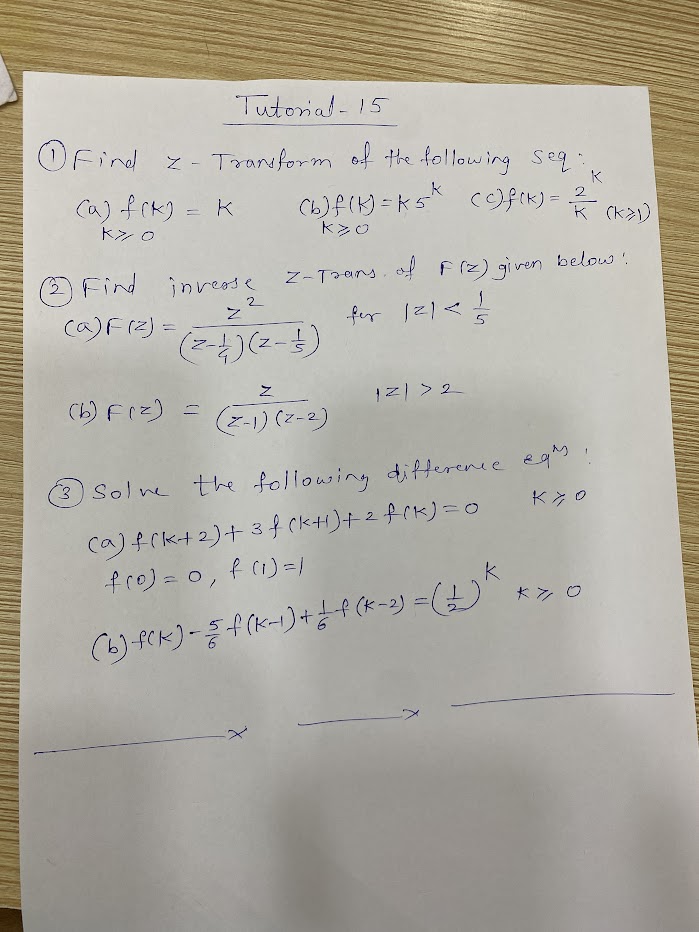 Tutorial - 15
① Find z - Transform of the following seq:
(a) f(k) = k (b) f(k) = k5^k (c) f(k) = 2^k/k (k≥1)
k≥0 k≥0
② Find inverse Z-Trans. of F(z) given below:
(a) F(z) = z^2/((z-1/4)(z-1/5)) for |z| < 1/5
(b) F(z) = z/((z-1)(z-2)) |z| > 2
③ Solve the following difference eqns:
(a) f(k+2) + 3f(k+1) + 2f(k) = 0 k≥0
f(0) = 0, f(1) = 1
(b) f(k) - 5/6 f(k-1) + 1/6 f(k-2) = (1/2)^k k≥0